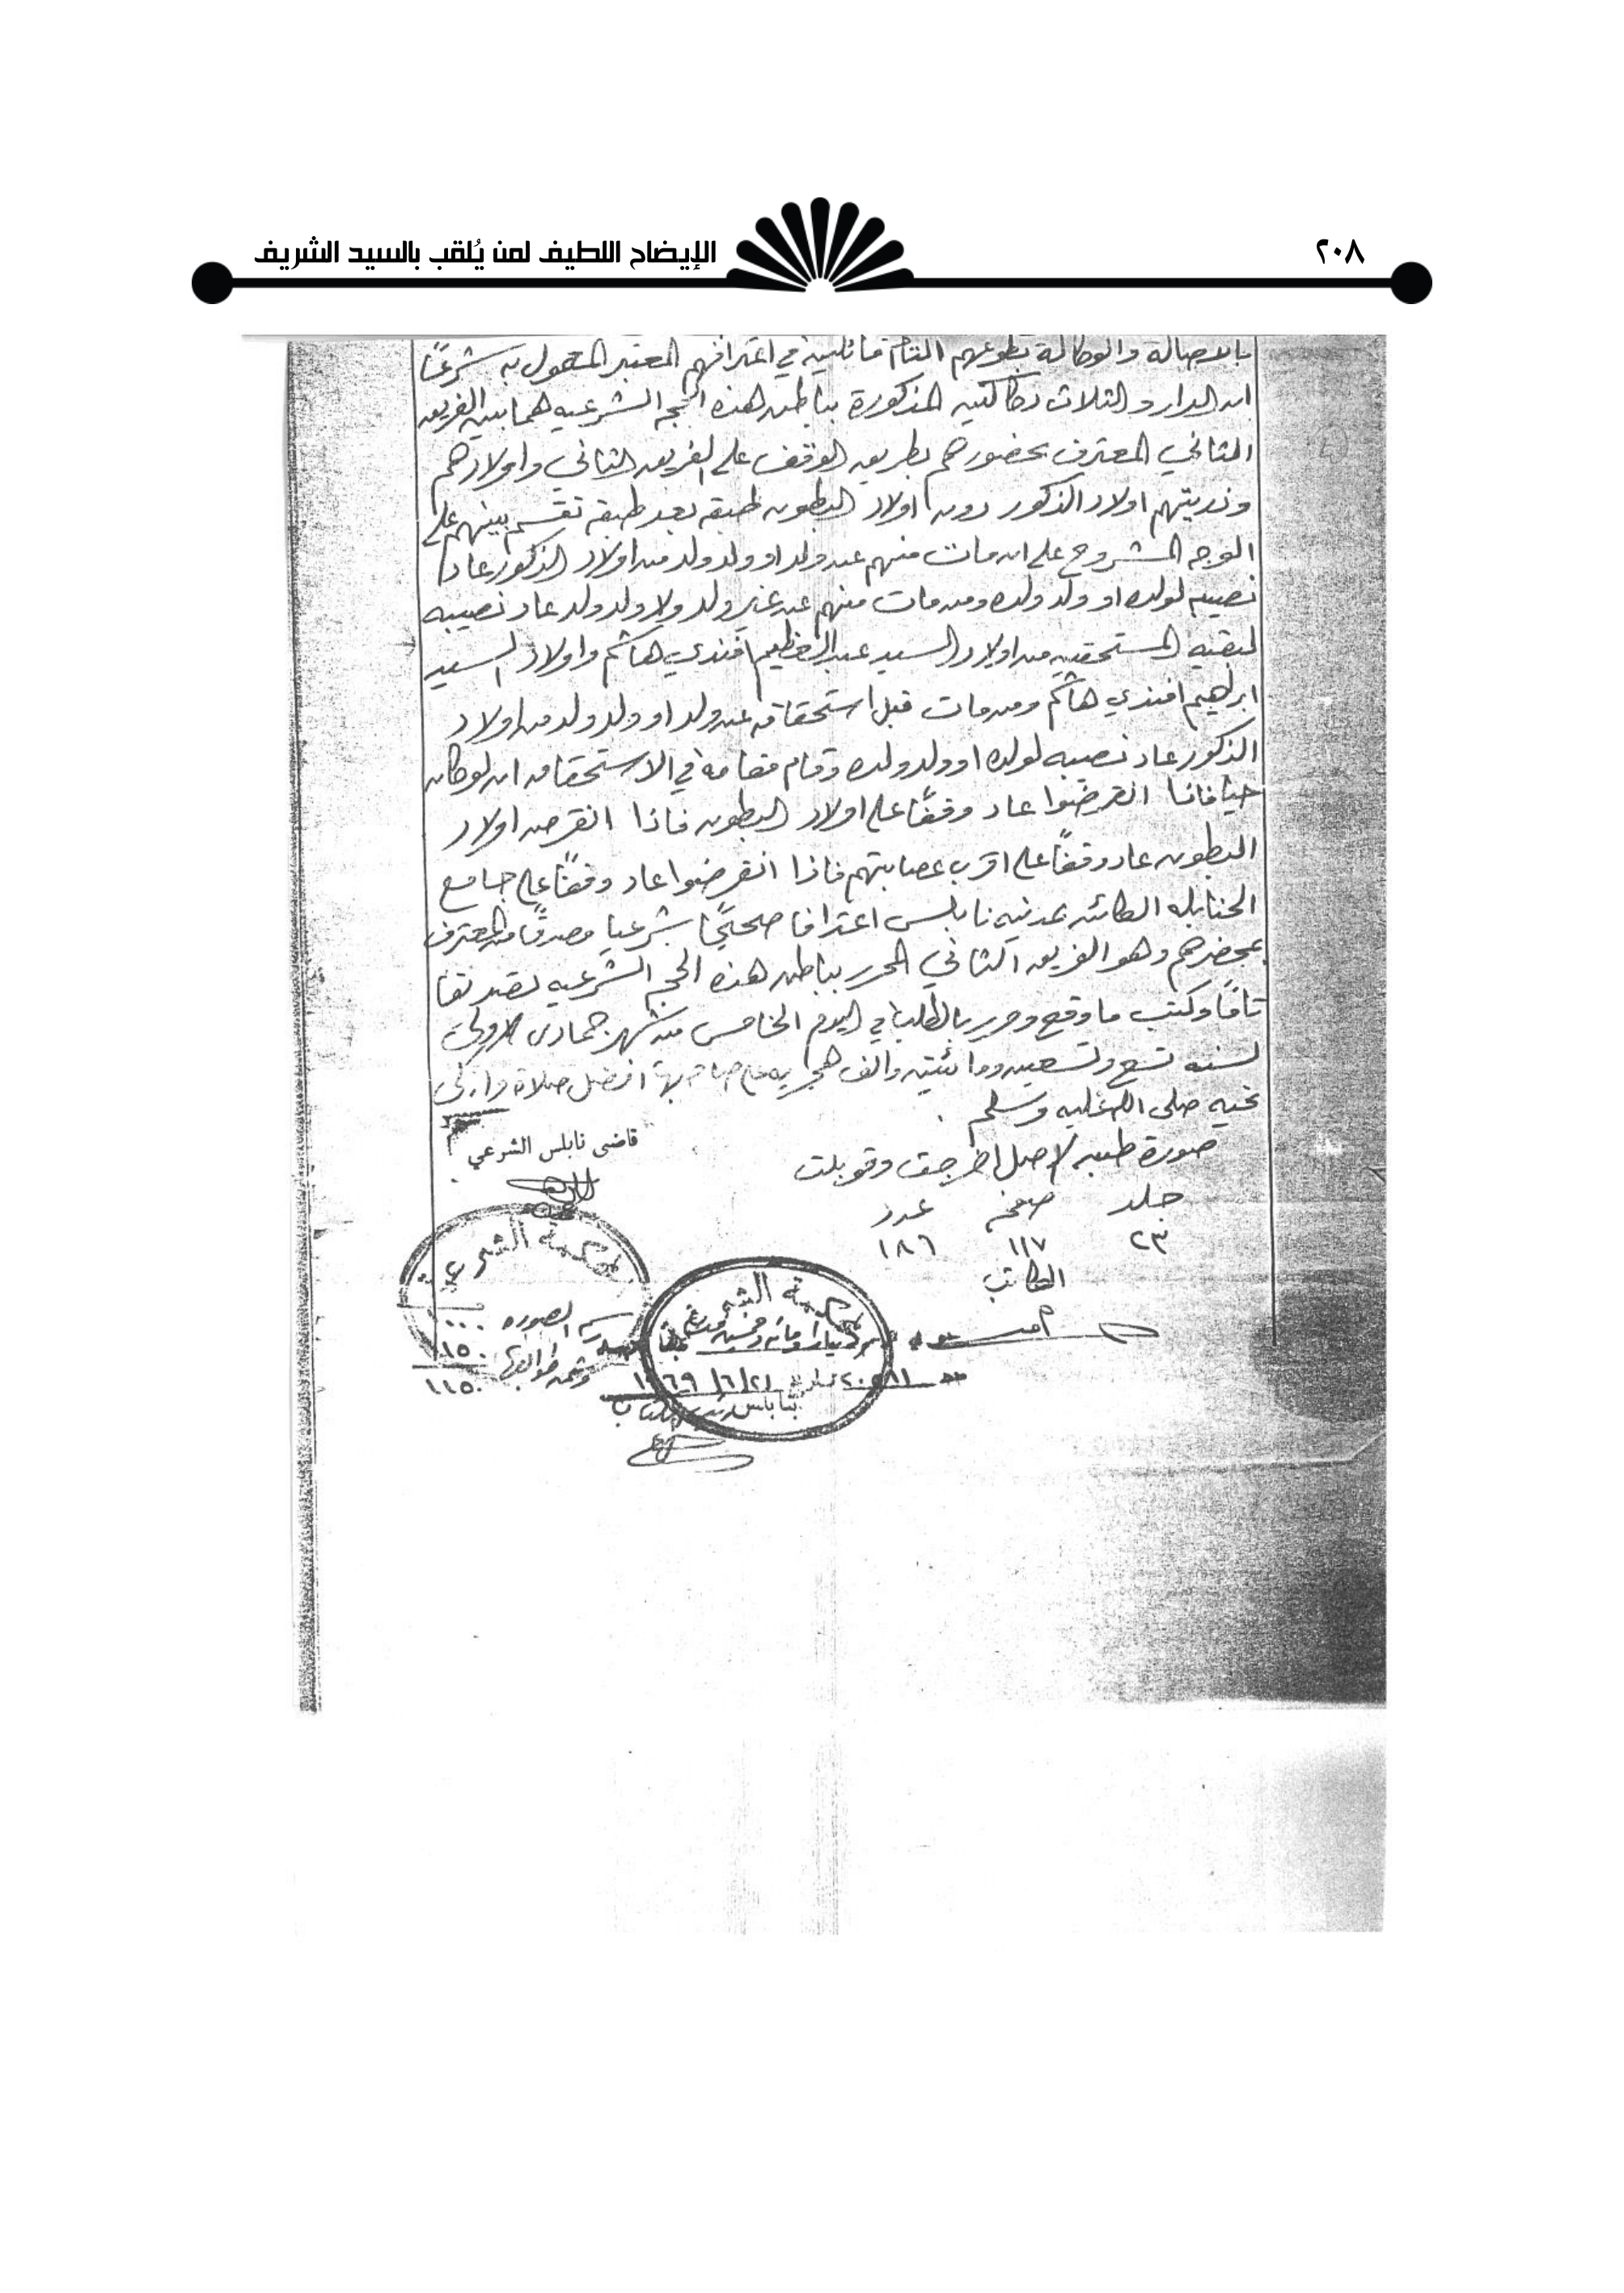 ٢٠٨
الإيضاح اللطيف لمن يُلقب بالسيد الشريف
بالاصالة والوكالة بطوعهم التام قائلين في اعترافهم المعتبر المعمول به شرعًا
ان الدار والثلاث دكاكين المذكورة بباطن هذه الحجه الشرعيه هما بيد الفريق
الثاني المعترف بحضورهم بطريق الوقف على الفريق الثاني واولادهم
وذريتهم اولاد الذكور دون اولاد البطون طبقه بعد طبقه تقسم بينهم على
الوجه المشروح على ان مات منهم عن ولد او ولد ولد من اولاد الذكور عاد
نصيبه لولده او ولد ولده ومن مات منهم عن غير ولد ولا ولد ولد عاد نصيبه
لبقية المستحقين من اولاد السيد عبد العظيم افندي هاشم واولاد السيد
ابراهيم افندي هاشم ومن مات قبل استحقاقه عن ولد او ولد ولد من اولاد
الذكور عاد نصيبه لولده او ولد ولده وقام مقامه في الاستحقاق ان لو كان
حيا فاذا انقرضوا عاد وقفًا على اولاد البطون فاذا انقرض اولاد
البطون عاد وقفًا على اقرب عصابتهم فاذا انقرضوا عاد وقفًا على جامع
الحنابله الكائن بمدنيه نابلس اعترافا صحيحًا شرعيا مصدقًا من المعترف
بمحضرهم وهو الفريق الثاني المحرر بباطن هذه الحجه الشرعيه تصديقا
تامًا وكتب ما وقع وحرر بالطلب في اليوم الخامس من شهر جمادى الاولى
لسنه تسع وتسعين ومائتين والف هجريه على صاحبها افضل صلاة وازكى
تحيه صلى الله عليه وسلم
صورة طبق الاصل اخرجت وقوبلت
قاضي نابلس الشرعي
جلد صفحه عدد
٢٣ ١١٧ ١٨٦
الكاتب
المحكمة الشرعية
المحكمة الشرعية
رسم الصوره ١٠٠٠
وثمن طوابعها ١٥٠
١١٥٠
١٩٦٩/٦/٢١
بنابلس